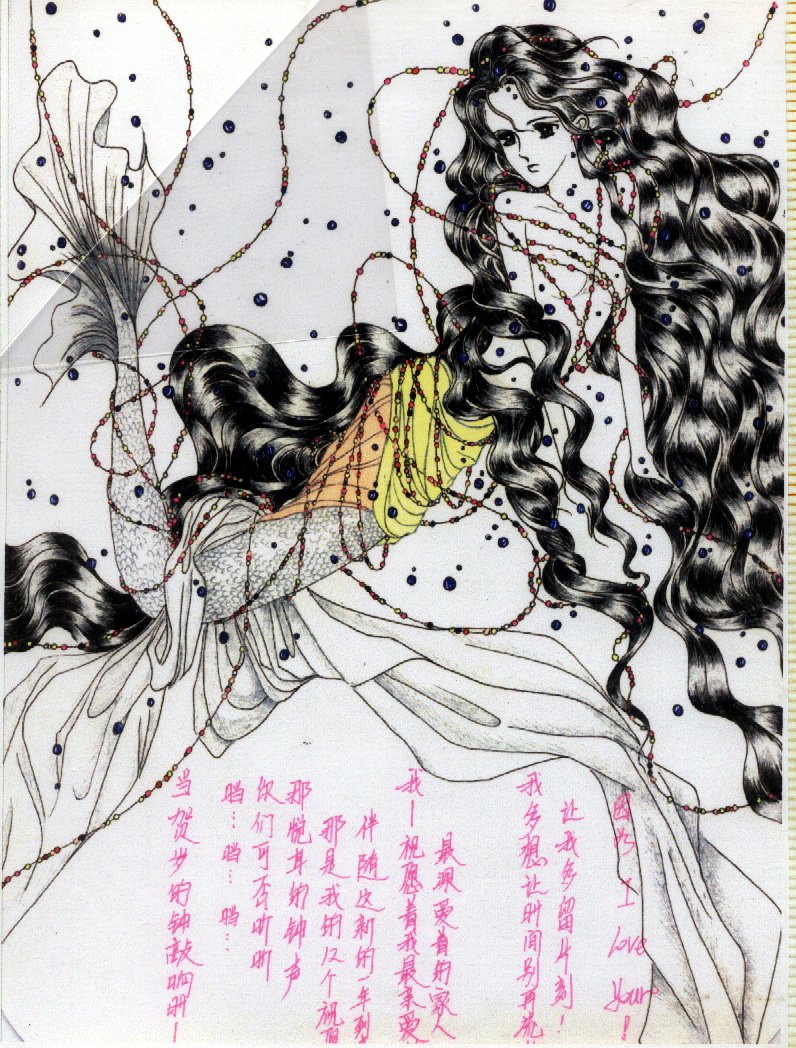 当贺岁的钟敲响时—
噹…噹…噹…
你们可否听听
那悦耳的钟声
那是我的12个祝愿
伴随这新的一年到
我—祝愿着我最亲爱
最深爱着的家人
我多想让时间别再流
让我多留片刻!
因为 I love your!